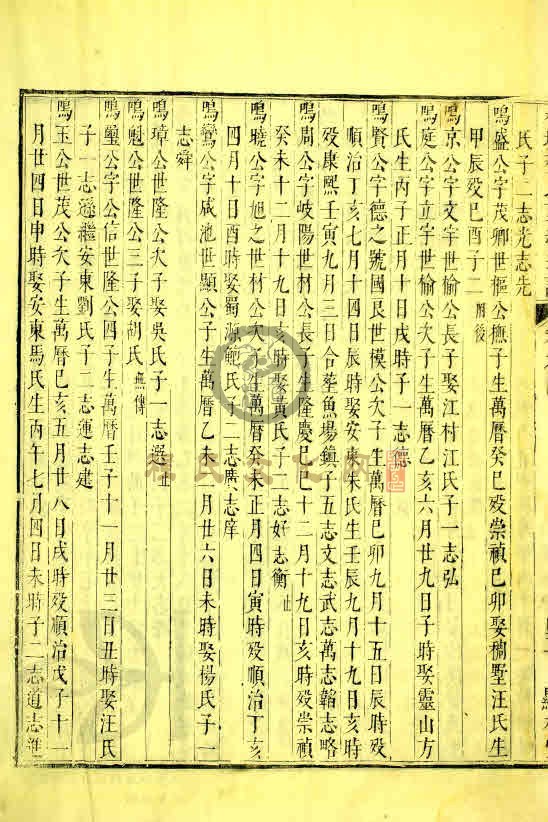 氏子二志光志先
鳴盛公字茂卿世樞公橅子生萬曆癸巳歿崇禎己卯娶稠墅汪氏生
甲辰歿己酉子二 用後
鳴京公字文宇世愉公長子娶江村江氏子一志弘
鳴庭公字立宇世愉公次子生萬曆乙亥六月廿九日子時娶靈山方
氏生丙子正月十日戌時子一志德
鳴賢公字德之號國艮世模公次子生萬曆己卯九月十五日辰時歿
順治丁亥七月十四日辰時娶安東朱氏生壬辰九月十九日亥時
歿康熙壬寅九月三日合葬魚場鎮子五志文志武志萬志翰志略
鳴周公字岐陽世材公長子生隆慶己巳十二月十九日亥時歿崇禎
癸未十二月十九日亥時娶黃氏子二志好志衡 止
鳴曉公字旭之世材公次子生萬曆癸未正月四日寅時歿順治丁亥
四月十日酉時娶蜀源鮑氏子二志廣志庠
鳴鸞公字咸池世顯公子生萬曆乙未 月廿六日未時娶楊氏子一
志舜
鳴璋公世隆公次子娶吳氏子一志選 止
鳴魁公世隆公三子娶胡氏 無傳
鳴璽公字公信世隆公四子生萬曆壬子十一月廿三日丑時娶汪氏
子一志遜繼安東劉氏子二志運志建
鳴玉公世茂公次子生萬曆己亥五月廿八日戌時歿順治戊子十一
月廿四日申時娶安東馬氏生丙午七月四日未時子二志道志進